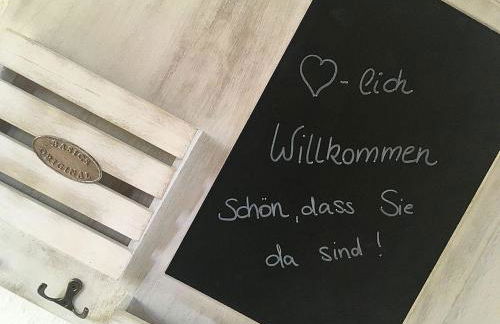 BASICS
ORIGINAL
♡-lich
Willkommen
Schön, dass Sie
da sind!